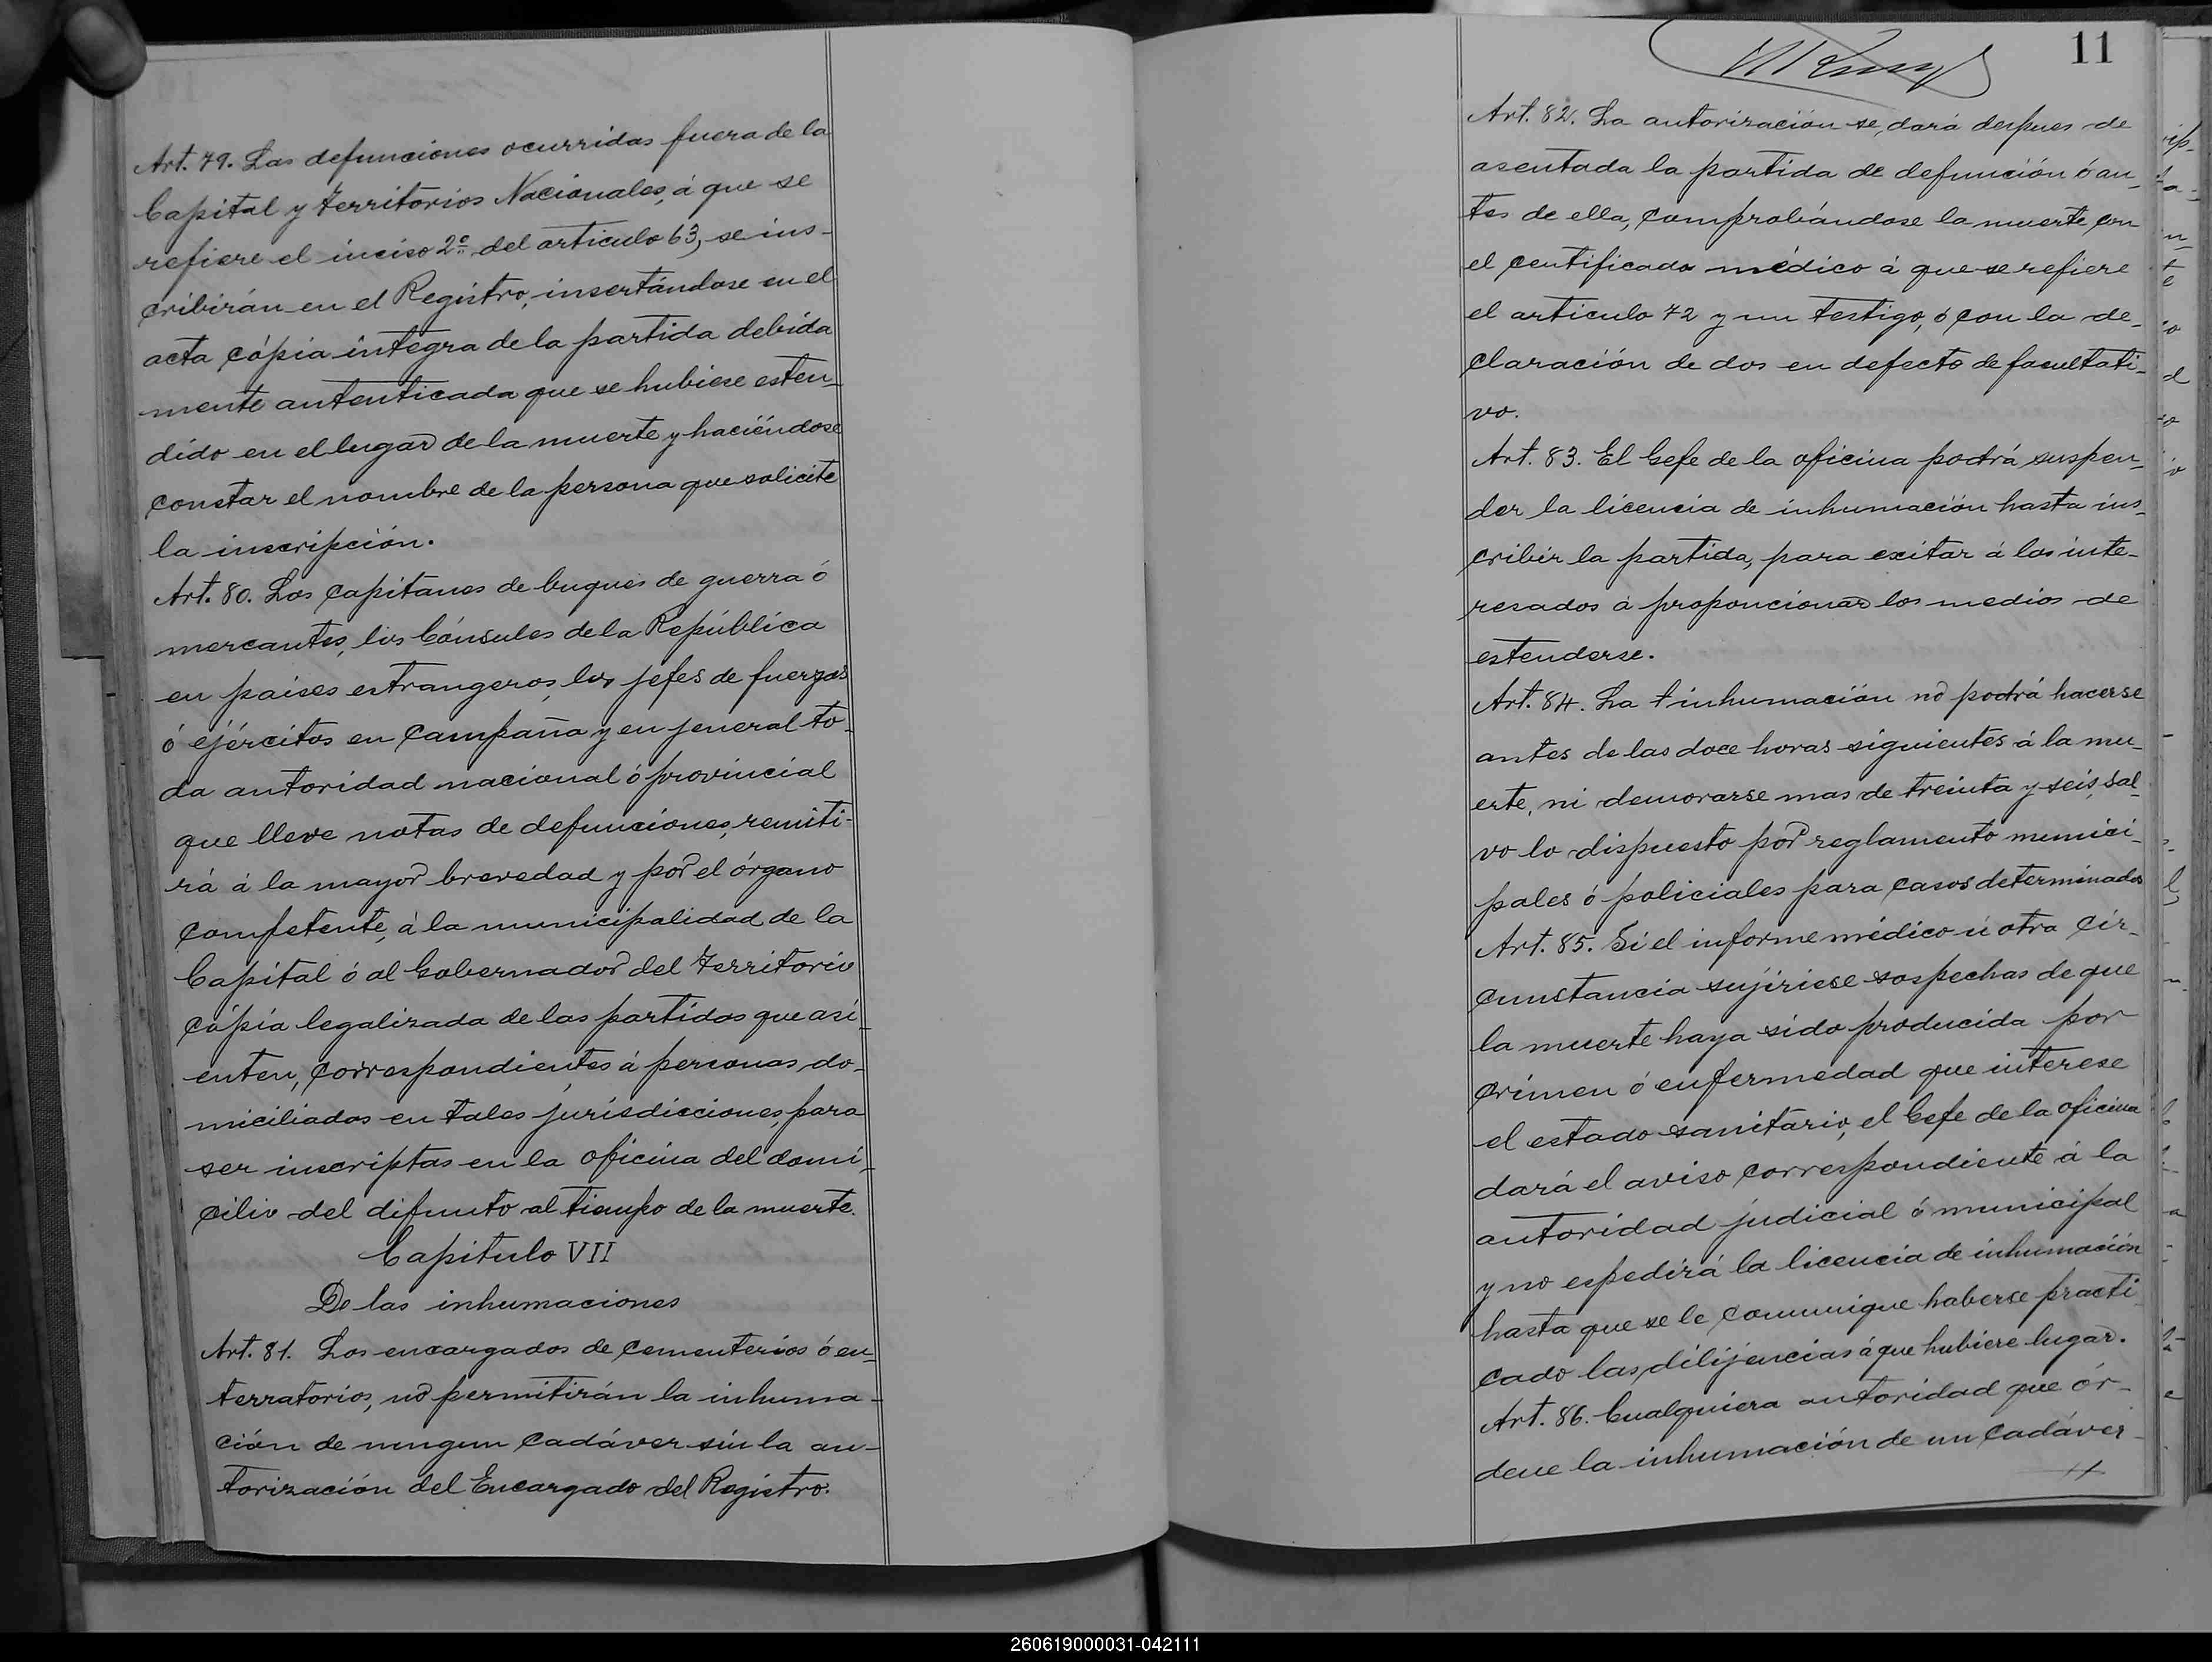 Art. 79. Las defunciones ocurridas fuera de la
Capital y Territorios Nacionales, á que se
refiere el inciso 2º del articulo 63, se ins-
cribirán en el Registro, insertándose en el
acta cópia integra de la partida debida
mente autenticada que se hubiese esten-
dido en el lugar de la muerte y haciéndose
constar el nombre de la persona que solicite
la inscripción.
Art. 80. Los Capitanes de buques de guerra ó
mercantes, los Cónsules de la República
en paises estrangeros, los jefes de fuerzas
ó ejércitos en Campaña y en jeneral to-
da autoridad nacional ó provincial
que lleve notas de defunciones, remiti-
rá á la mayor brevedad y por el órgano
competente, á la municipalidad de la
Capital ó al Gobernador del Territorio
cópia legalizada de las partidas que asi-
enten, correspondientes á personas do-
miciliadas en tales jurisdicciones, para
ser inscriptas en la oficina del domi-
cilio del difunto al tiempo de la muerte.
Capitulo VII
De las inhumaciones
Art. 81. Los encargados de cementerios ó en-
terratorios, no permitirán la inhuma-
ción de ningun cadáver sin la au-
torización del Encargado del Registro.
11
Art. 82. La autorización se dará despues de
asentada la partida de defunción ó an-
tes de ella, comprobándose la muerte con
el certificado médico á que se refiere
el articulo 72 y un testigo, ó con la de-
claración de dos en defecto de facultati-
vo.
Art. 83. El Gefe de la oficina podrá suspen-
der la licencia de inhumación hasta ins-
cribir la partida, para exitar á los inte-
resados á proporcionar los medios de
estenderse.
Art. 84. La inhumación no podrá hacerse
antes de las doce horas siguientes á la mu-
erte, ni demorarse mas de treinta y seis, sal-
vo lo dispuesto por reglamento munici-
pales ó policiales para casos determinados
Art. 85. Si el informe médico ú otra cir-
cunstancia sujiriese sospechas de que
la muerte haya sido producida por
crimen ó enfermedad que interese
el estado sanitario, el Gefe de la oficina
dará el aviso correspondiente á la
autoridad judicial ó municipal
y no espedirá la licencia de inhumación
hasta que se le comunique haberse practi-
cado las dilijencias á que hubiere lugar.
Art. 86. Cualquiera autoridad que ór-
dene la inhumación de un cadáver
260619000031-042111